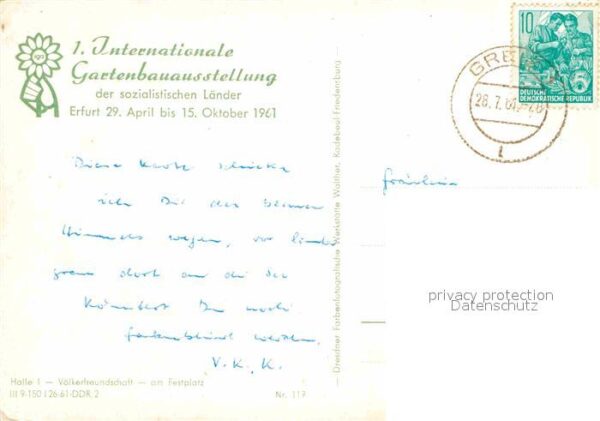 iga
1. Internationale
Gartenbauausstellung
der sozialistischen Länder
Erfurt 29. April bis 15. Oktober 1961
10
DEUTSCHE
DEMOKRATISCHE REPUBLIK
28.7.61
Diese Karte schicke
ich Dir des blauen
Himmels wegen, vor
grau dort an der
Du noch
werden.
V. K. K.
Fräulein
Dresdner Farbenfotografische Werkstätte Walther, Radebeul-Friedensburg
privacy protection
Datenschutz
Halle 1 — Völkerfreundschaft — am Festplatz
III 9-150 J 26-61-DDR 2
Nr. 119